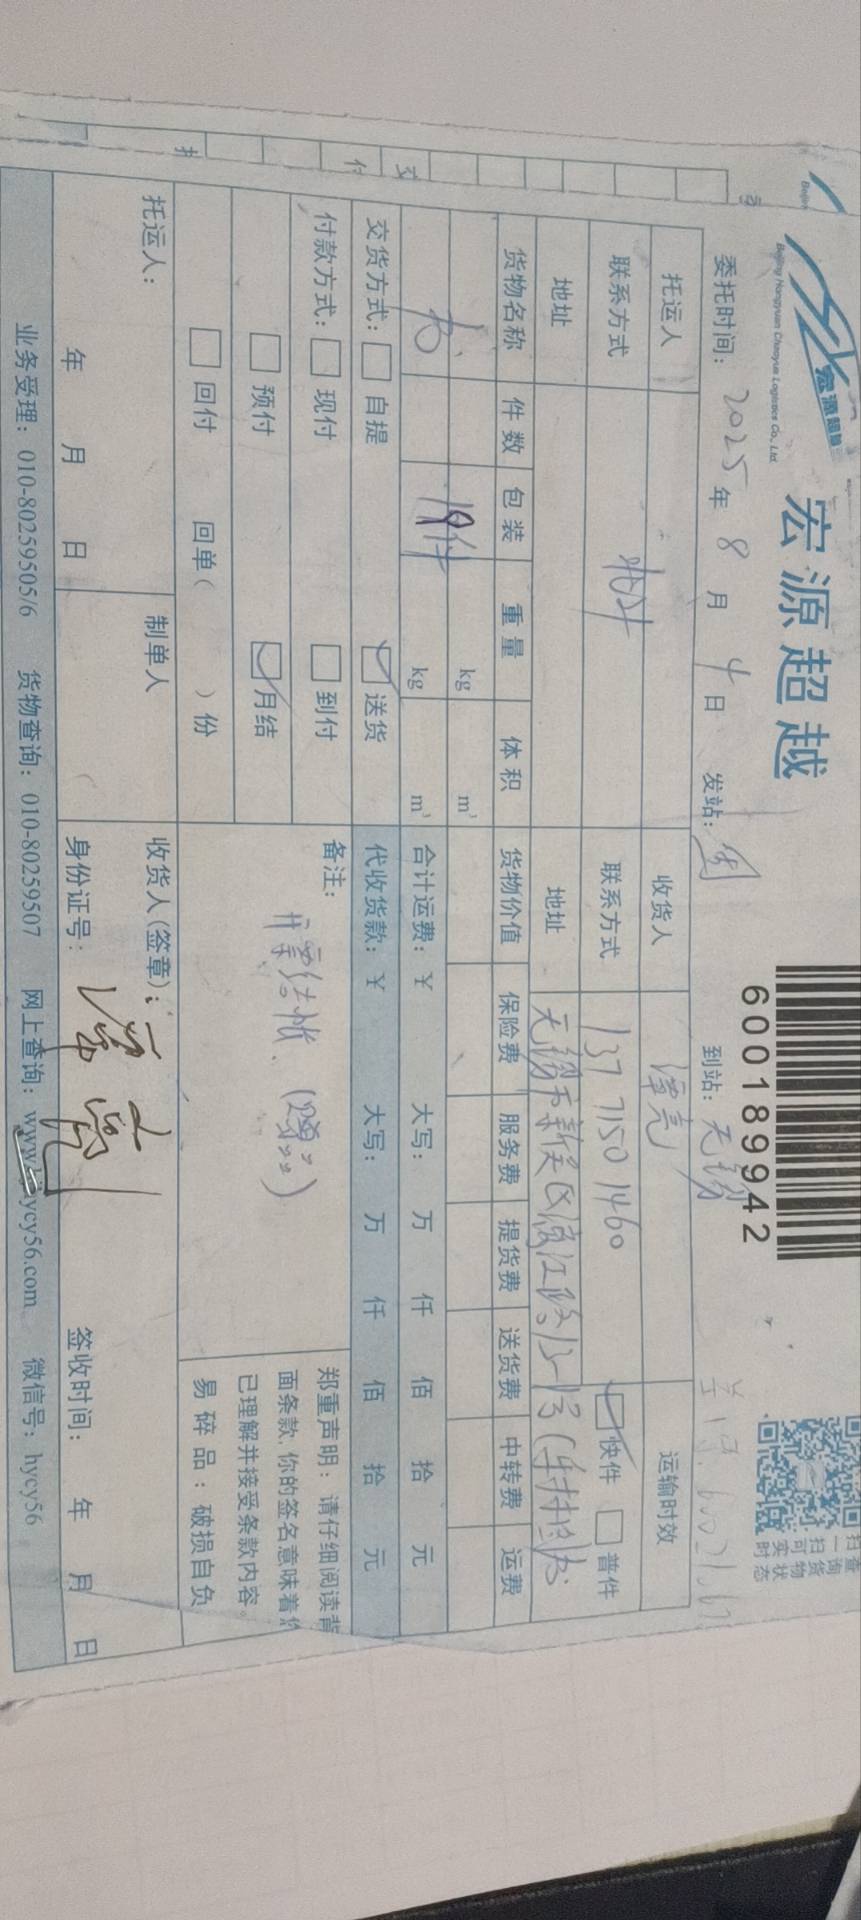 宏源超越
Beijing Hongyuan Chaoyue Logistics Co., Ltd.
宏源超越
600189942
扫一扫可实时
查询货物状态
委托时间: 2025 年 8 月 4 日 发站: 到站: 无锡
托运人 收货人 谭亮 运输时效
联系方式 联系方式 137 7150 1460 快件 普件
地址 地址 无锡市新吴区
货物名称 件数 包装 重量 体积 货物价值 保险费 服务费 提货费 送货费 中转费 运费
kg m³
19件 kg m³ 合计运费: ¥ 大写: 万 仟 佰 拾 元
交货方式: 自提 送货 代收货款: ¥ 大写: 万 仟 佰 拾 元
付款方式: 现付 到付 备注:
预付 月结
回付 回单( )份
郑重声明: 请仔细阅读背
面条款,你的签名意味着你
已理解并接受条款内容。
易碎品: 破损自负
托运人: 制单人 收货人(签章): 谭亮
年 月 日 身份证号: 签收时间: 年 月 日
业务受理: 010-80259505/6 货物查询: 010-80259507 网上查询: www.hycy56.com 微信号: hycy56